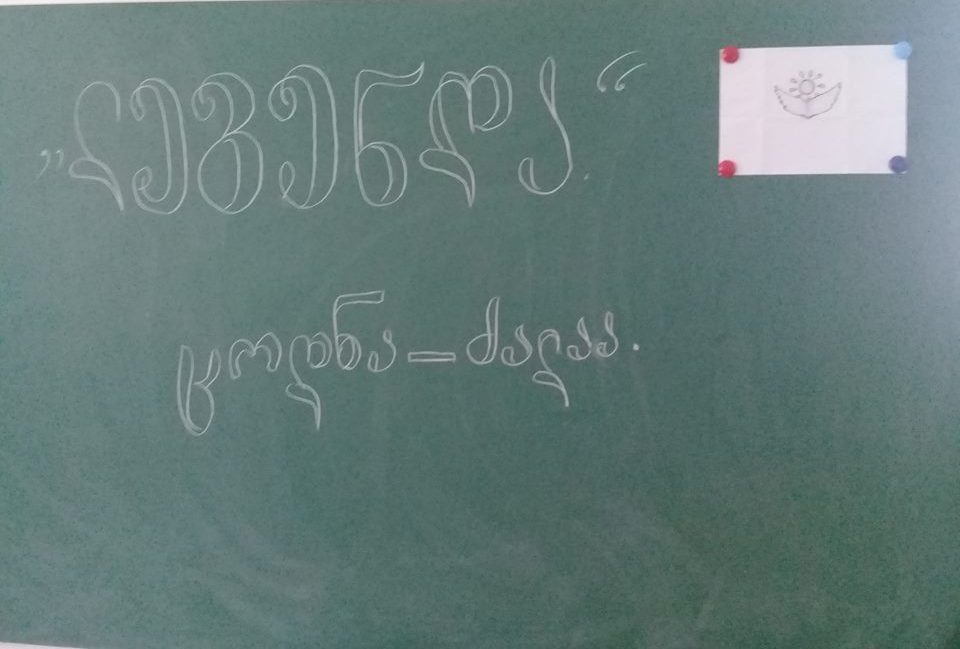 „ლეგენდა.“
ცოდნა – ძალაა.